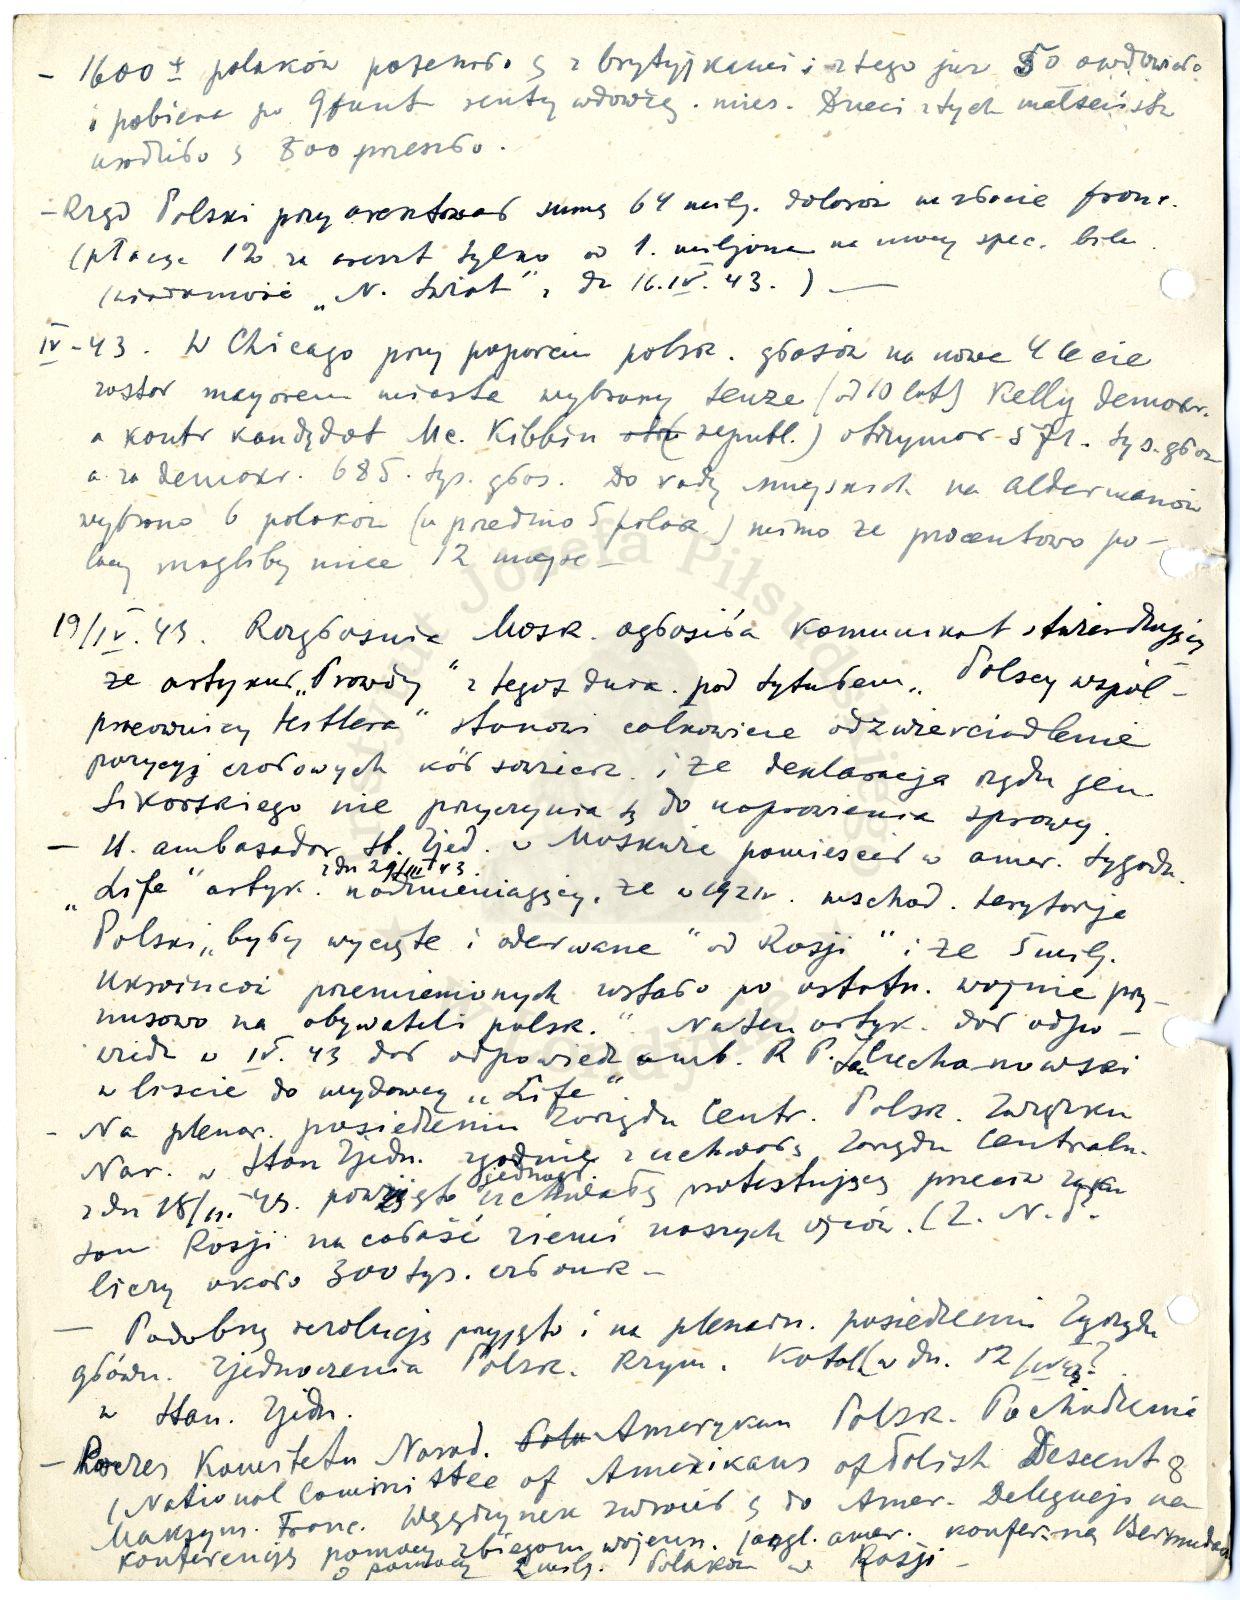 - 1600 ± polaków pożeniło ę z brytyjkami i z tego już 50 owdowiało
i pobiera po 9 funt renty wdowzę. mies. Dzieci z tych małżeństw
urodziło ę 800 przeszło.
- Rząd Polski przyaresztował sumę 64 milj. dolarów w złocie franc.
(płacąc 1% za areszt tylko od 1. miljona na mocy spec. bilu.
(wiadomość „N. Świat", z dn 16.IV.43.) —
IV-43. W Chicago przy poparciu polsk. głosów na nowe 4 lecie
został mayorem miasta wybrany tenże (od 10 lat) Kelly demokr.
a kontr kandydat Mc. Kibbin republ.) otrzymał 571. tys. głos
a za demokr. 685. tys. głos. Do rady miejskich na aldermanów
wybrano 6 polaków (uprzednio 5 polak.) mimo że procentowo po-
lacy mogliby mieć 12 miejsc -
19/IV.43. Rozgłośnia Mosk. ogłosiła komunikat stwierdzający
że artykuł „Prawdy" z tegoż dnia. pod tytułem „Polscy współ-
pracownicy Hitlera" stanowi całkowicie odzwierciadlenie
pozycyj czołowych kół sowieck. i że deklaracja rządu gen
Sikorskiego nie przyczynia ę do naprawienia sprawy.
- H. ambasador St. Zjed. w Moskwie pomieścił w amer. tygodn.
z dn 29/III 43.
„Life" artyk. nadmieniający, że w 1921r. wschod. terytorja
Polski „były wycięte i oderwane" od Rosji" i że 5 milj.
Ukraińców przemienionych zostało po ostatn. wojnie przy-
musowo na obywateli polsk.". Na ten artyk. dał odpo-
wiedź w IV. 43 dał odpowiedź amb. R P. Jan Ciechanowski
w liście do wydawcy „Life"
- Na plenar. posiedzeniu Zarządu Centr. Polsk. Związku
Nar. w Stan Zjedn. zgodnie z uchwałą Zarządu Centraln.
z dn 18/II. 43. powzięto jednogł. uchwałę protestującą przeciw zaku
som Rosji na całość ziemi naszych ojców. (Z. N. P.
liczy około 300 tys. członk -
- Podobną rezolucję przyjęto i na plenarn. posiedzeniu Zarządu
główn. Zjednoczenia Polsk. Rzym. Katol (w dn. 12/IV 43?
w Stan. Zjedn.
- Prezes Komitetu Narod. Polu Amerykan Polsk. Pochodzenia
(National Committee of Amerikans of Polish Descent
Maksym. Franc. Węgrzynek zwrócił ę do Amer. Delegacji na
konferencję pomocy zbiegom wojenn. (angl. amer. konfer. na Bermudach
o pomocy 2 milj. Polaków w Rosji -
8
Instytut Józefa Piłsudskiego
w Londynie